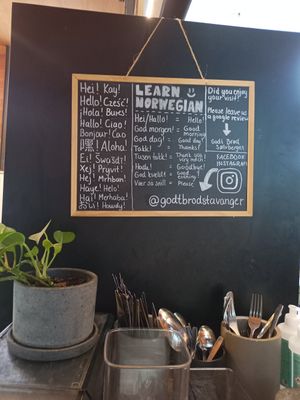 Hei! Kay!
Hello! Cześć!
¡Hola! Bures!
Hallo! Ciao!
Bonjour! Ćao!
嘿! Aloha!
Ei! Swasdi!
Xej! Pryvit!
Hej! Mrhban!
Haye! Helo!
Hai! Merhaba!
Howdy!
LEARN
NORWEGIAN
Hei/Hallo! = Hello!
God morgen! = Good morning!
God dag! = Good day!
Takk! = Thanks!
Tusen takk! = Thank you very much!
Hade! = Goodbye!
God kveld! = Good evening!
Vær så snill = Please!
Did you enjoy
your visit?
Please leave us
a google review
Godt Brød
Sølvberget
FACEBOOK
INSTAGRAM
@godtbrodstavanger